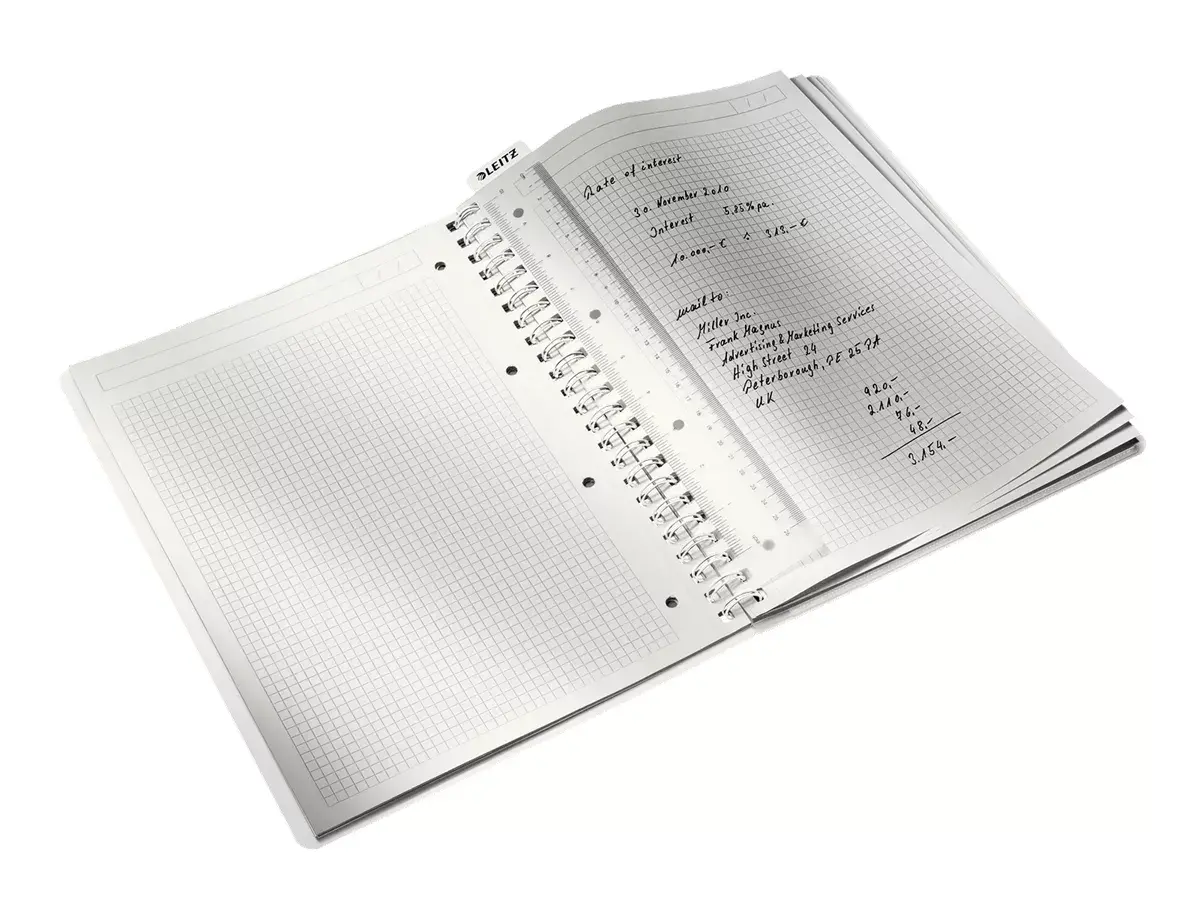 LEITZ
Rate of interest
30. November 2010
Interest 5,85% pa.
10.000,- € ≙ 313,- €
mail to:
Miller Inc.
Frank Magnus
Advertising & Marketing Services
High Street 24
Peterborough, PE 25 PA
UK
920,-
2.110,-
76,-
48,-
3.154,-